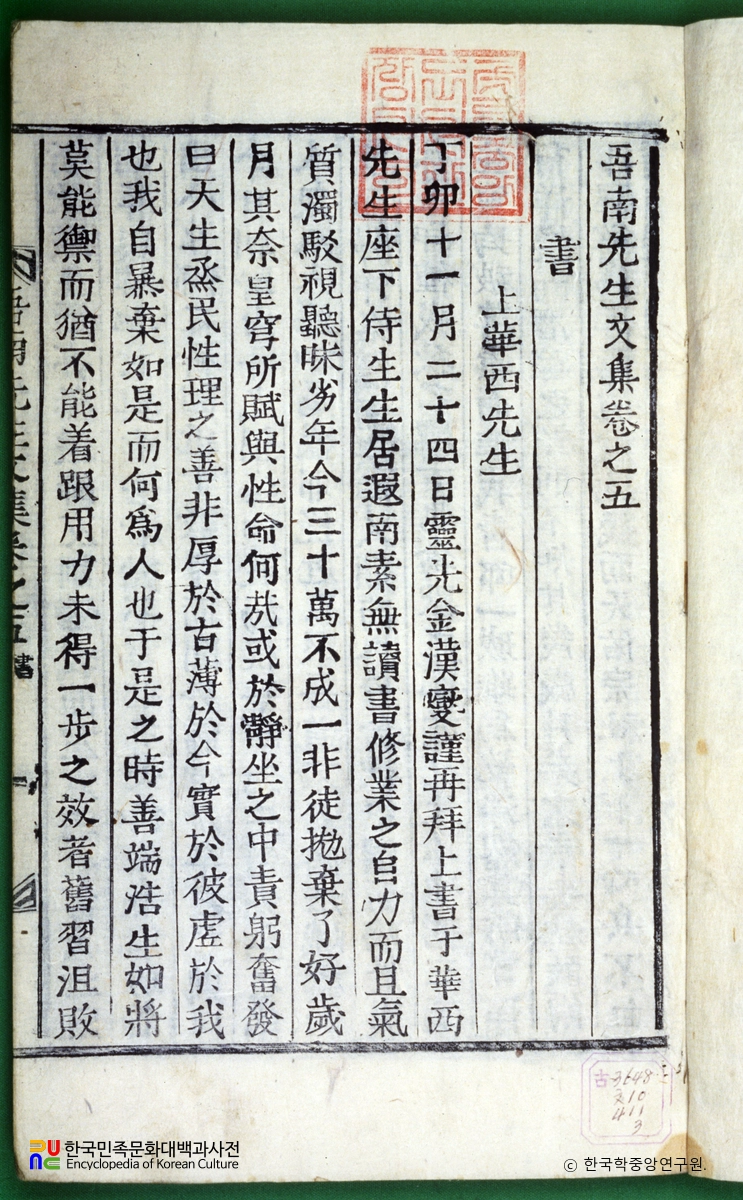 吾南先生文集卷之五
書
上華西先生
丁卯十一月二十四日靈光金漢燮謹再拜上書于華西
先生座下侍生生居遐南素無讀書修業之自力而且氣
質濁駁視聽昧劣年今三十萬不成一非徒抛棄了好歲
月其奈皇穹所賦與性命何哉或於靜坐之中責躬奮發
曰天生烝民性理之善非厚於古薄於今實於彼虛於我
也我自暴棄如是而何爲人也于是之時善端浩生如將
莫能禦而猶不能着跟用力未得一步之效者舊習沮敗
吾南先生文集卷之五 書
古
3648
文10
4 11
3
한국민족문화대백과사전
Encyclopedia of Korean Culture
© 한국학중앙연구원.